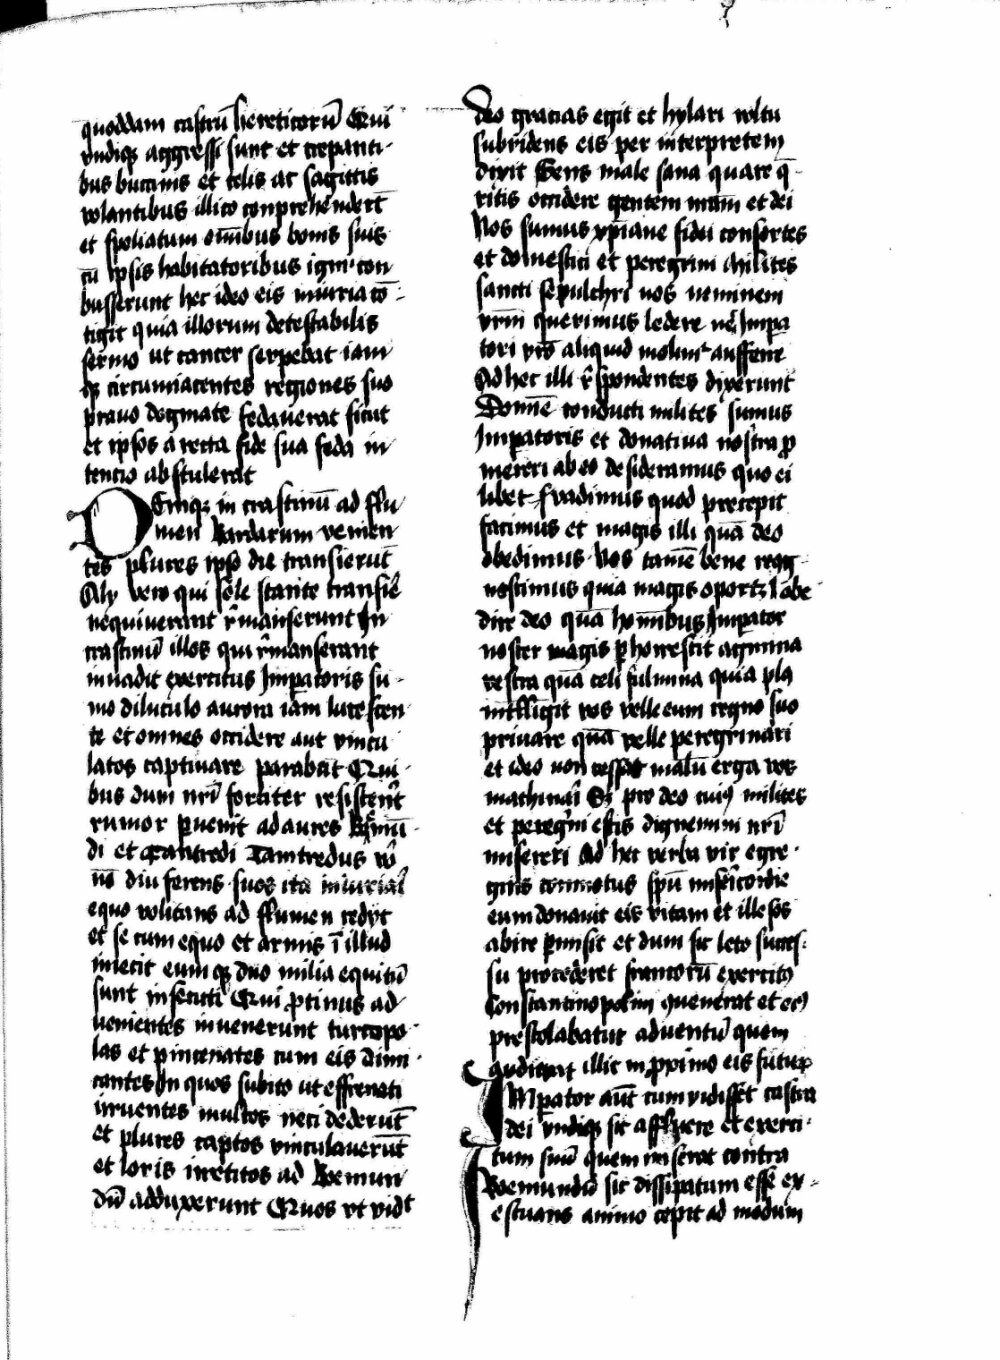 quoddam castrū hereticorū Qui
vndiqꝫ aggressi sunt et crepanti-
bus buccinis et telis ac sagittis
volantibus illico conprehenderūt
et spoliatum om̄ibus bonis suis
cū ipsis habitatoribus igni con
busserunt hec ideo eis iniuria cō-
tigit quia illorum detestabilis
sermo ut cancer serpebat iam
qꝫ circumiacentes regiones suo
prauo dogmate fedauerat sicut
et ipsos a recta fide sua feda in
tencio abstulerat
DEniqꝫ in crastinū ad flu
men Bardarum venien
tes plures ipso die transierūt
Aly vero qui sole stante transir̄
nequiuerant r̄manserunt In
crastinū illos qui r̄manserant
inuadit exercitus Imꝑatoris su-
mo diluculo aurora iam lucescen
te et omnes occidere aut vincu
latos captiuare parabāt Qui-
bus dum nr̄i fortiter resisterēt
rumor ꝑuenit ad aures Boemū-
di et Tantredi Tamtredus vō
nō diu ferens suoꝝ ita
equo volitans ad flumen redyt
et se cum equo et armis ī illud
iniecit eumqꝫ duo milia equitū
sunt insecuti Qui ꝓtinus ad
uenientes inuenerunt turcopo-
las et pincenates cum eis dimi-
cantes In quos subito ut effrenati
irruentes multos neci dederūt
et plures captos vinculauerūt
et loris irretitos ad Boemun
dū adduxerunt Quos vt vidͭ
deo gracias egit et hylari vultu
subridens eis per interpretem
dixit Gens male sana quare q̄
ritis occidere gentem nr̄am et dei
Nos sumus xp̄iane fidei consortes
et domestici et peregrini Milites
sancti sepulchri nos neminem
vrm̄ querimus ledere nec Impa
tori vrō aliquid molimͬ aufferre
Ad hec illi r̄spondentes dixerunt
Domīe conducti milites sumus
Imꝑatoris et donatiua nostra ꝓ
mereri ab eo desideramus quo ei
libet vadimus quod precepit
facimus et magis illi quā deo
obedimus Nos tamē bene recog-
noscimus quia magis oportꝫ obe
dire deo quā hominibus Imperator
noster magis ꝑhorrescit agmina
vestra quā celi fulmina quia plꝯ
intelligit vos velle eum regno suo
priuare quā velle peregrinari
et ideo non cessat malū erga vos
machinari Sꝫ pro deo cuiꝯ milites
et peregrini estis dignemini nr̄i
misereri Ad hec verba vir egre-
gius commotus spū misericordie
eum donauit eis vitam et illesos
abire ꝑmisit et dum sic leto succes-
su procederet francorū exercitꝯ
Constantinopolim quenerat et eiꝯ
prestolabatur aduentū quem
audierat illic in ꝓximo eis futurū
IMꝑator aūt cum vidisset castra
dei vndiqꝫ sic affluere et exerci-
tum suū quem miserat contra
Boemundū sic dissipatum esse ex-
estuans animo cepit ad modum